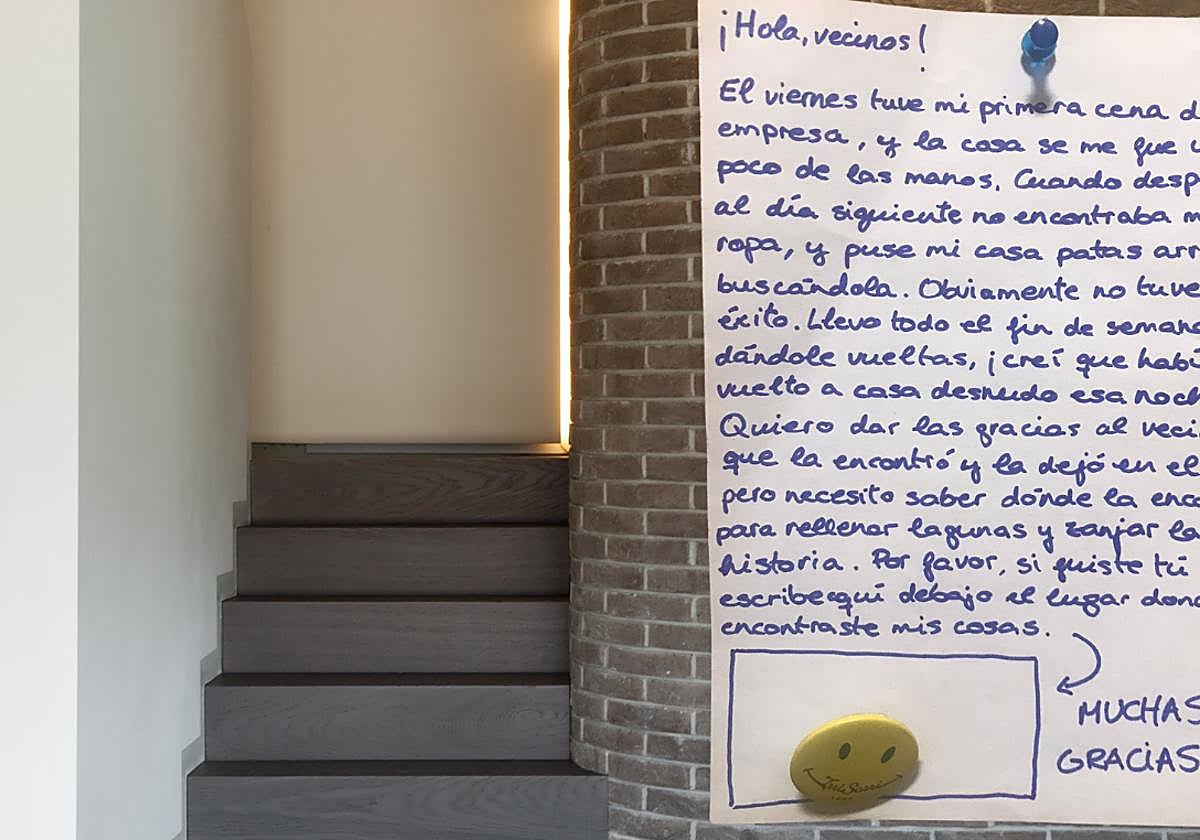 ¡Hola, vecinos!
El viernes tuve mi primera cena d
empresa, y la cosa se me fue u
poco de las manos. Cuando desp
al día siguiente no encontraba m
ropa, y puse mi casa patas arr
buscándola. Obviamente no tuve
éxito. Llevo todo el fin de seman
dándole vueltas, ¡creí que habí
vuelto a casa desnudo esa noch
Quiero dar las gracias al veci
que la encontró y la dejó en el
pero necesito saber dónde la enco
para rellenar lagunas y zanjar la
historia. Por favor, si fuiste tú
escribe aquí debajo el lugar dond
encontraste mis cosas.
MUCHAS
GRACIAS